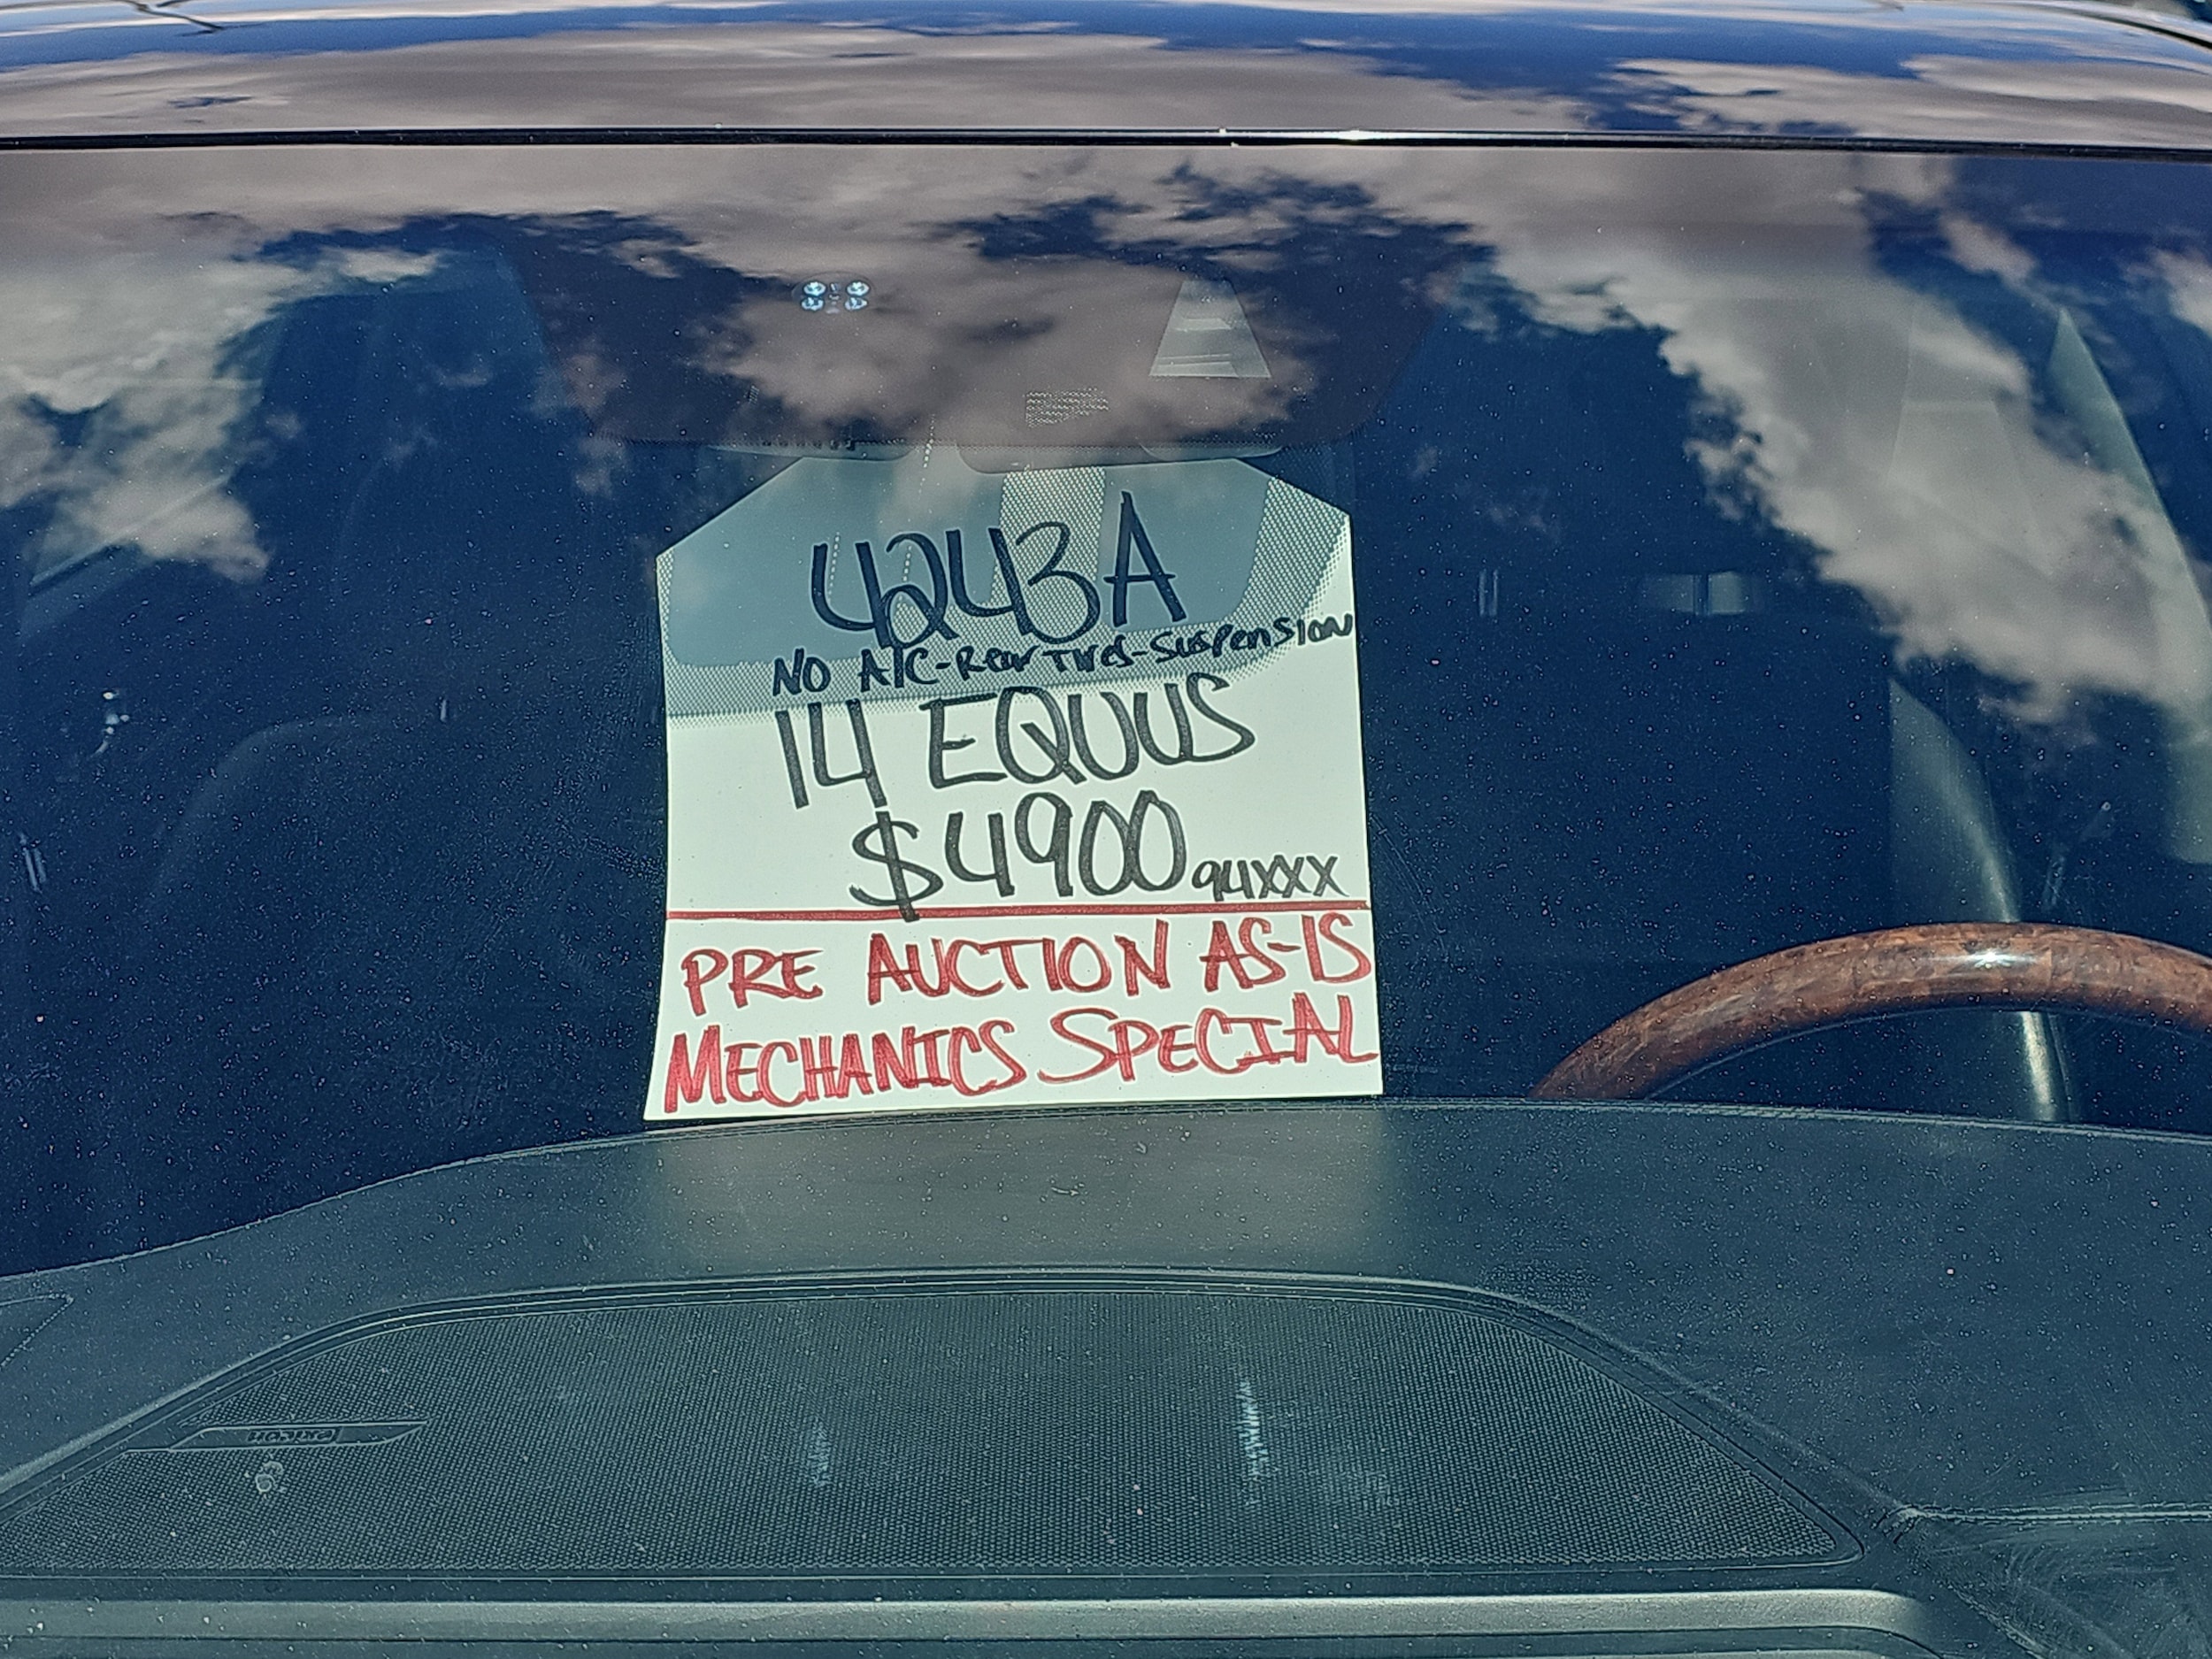 4243A
NO A/C-Rear Tires-Suspension
14 EQUUS
$4900 94XXX
PRE AUCTION AS-IS
MECHANICS SPECIAL
lexicon